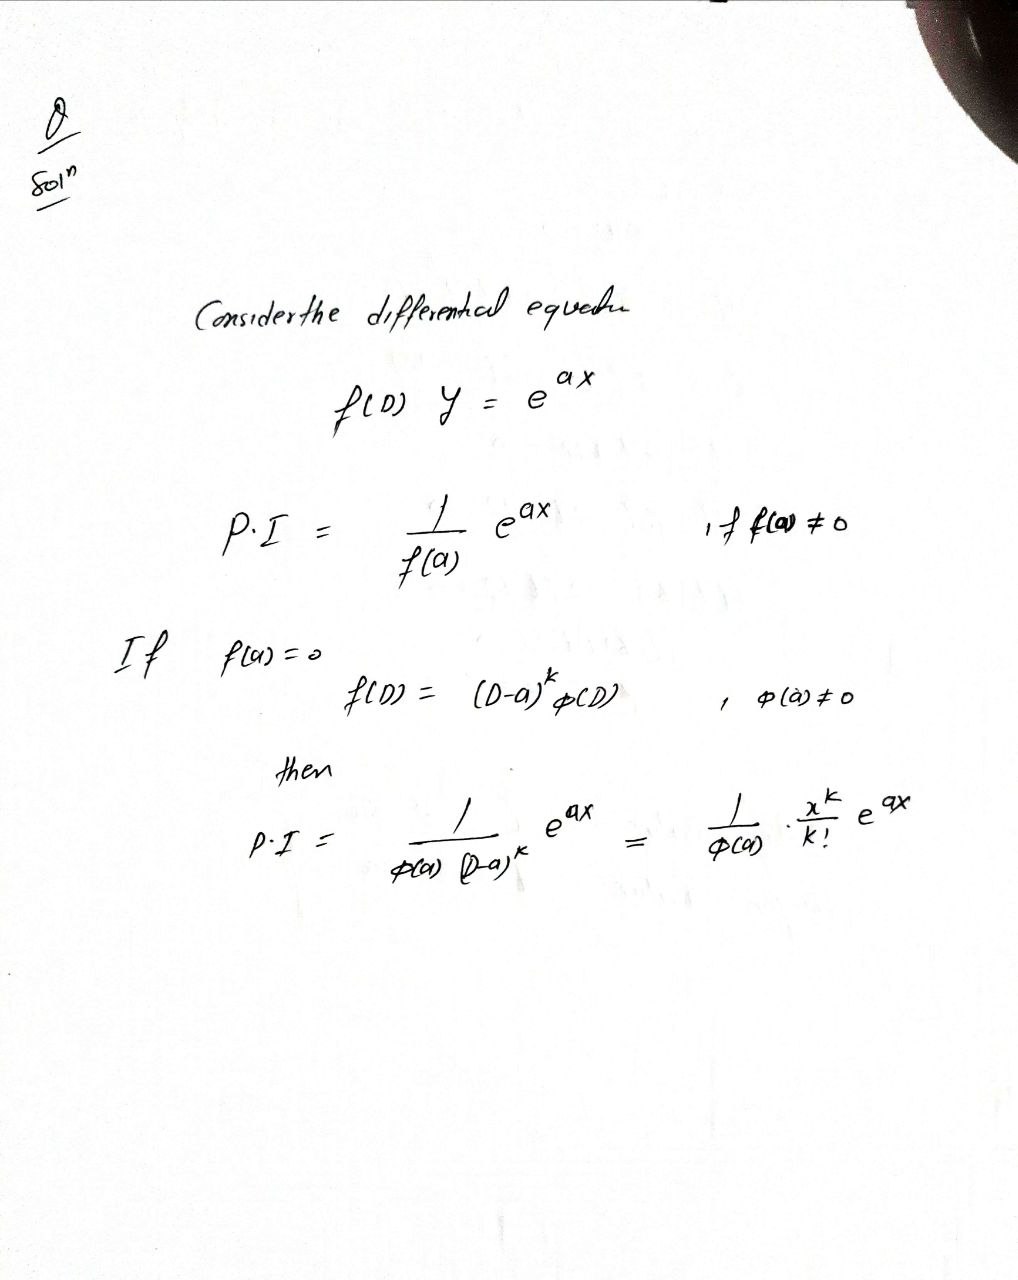 Q
Solⁿ
Consider the differential equatn
f(D) y = e^{ax}
P.I = \frac{1}{f(a)} e^{ax} , if f(a) ≠ 0
If f(a) = 0
f(D) = (D-a)^k φ(D) , φ(a) ≠ 0
then
P.I = \frac{1}{φ(a) (D-a)^k} e^{ax} = \frac{1}{φ(a)} . \frac{x^k}{k!} e^{ax}